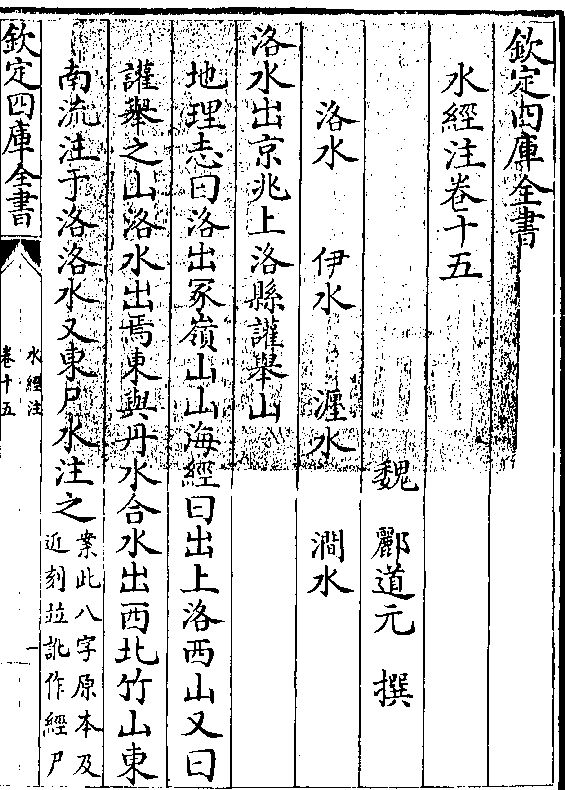 欽定四庫全書
水經注卷十五
魏 酈道元 撰
洛水 伊水 瀍水 澗水
洛水出京兆上洛縣讙舉山
地理志曰洛出冢嶺山山海經曰出上洛西山又曰
讙舉之山洛水出焉東與丹水合水出西北竹山東
南流注于洛洛水又東尸水注之
案此八字原本及
近刻並訛作經尸
欽定四庫全書
水經注
卷十五
一